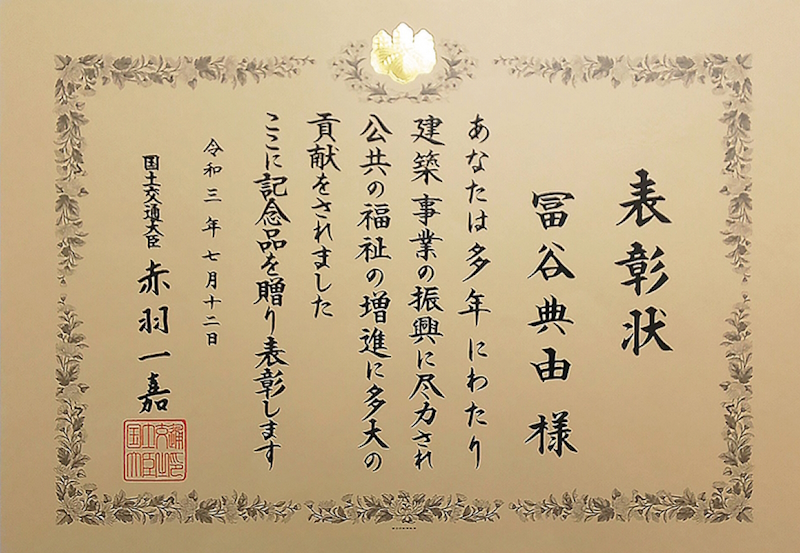 表彰状
冨谷典由様
あなたは多年にわたり
建築事業の振興に尽力され
公共の福祉の増進に多大の
貢献をされました
ここに記念品を贈り表彰します
令和三年七月十二日
国土交通大臣 赤羽一嘉
国土交通大臣之印